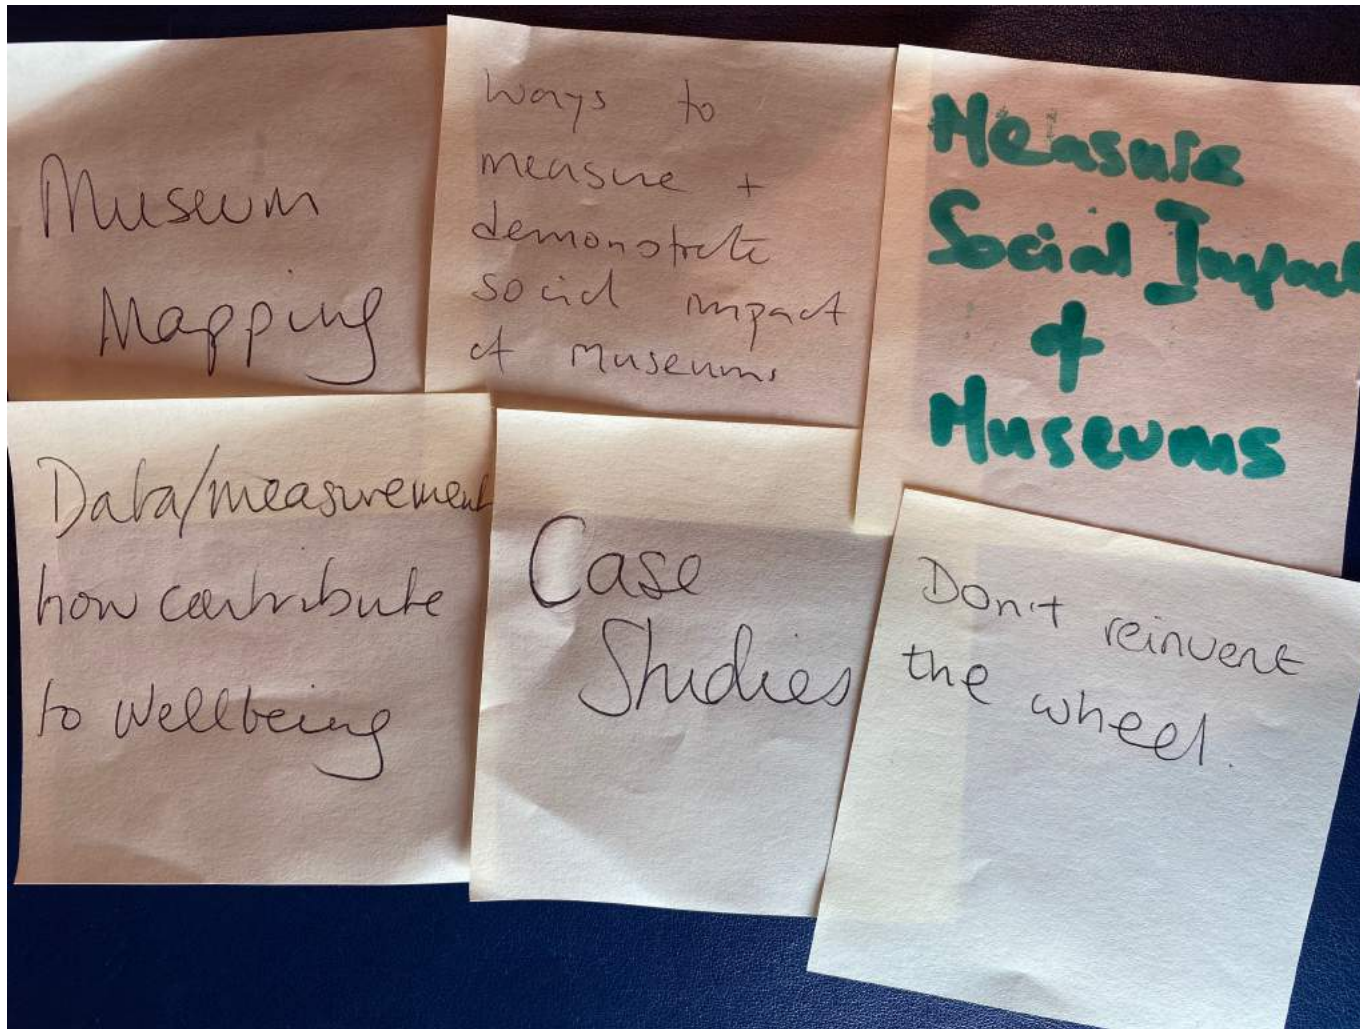 Museum
Mapping
Ways to
measure +
demonstrate
social impact
of Museums
Measure
Social Impact
+
Museums
Data/measurement
how contribute
to wellbeing
Case
Studies
Don't reinvent
the wheel.